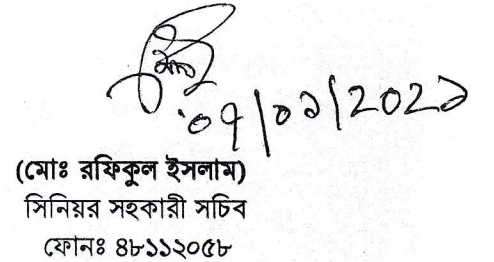 ০৭/০১/২০২১
(মোঃ রফিকুল ইসলাম)
সিনিয়র সহকারী সচিব
ফোনঃ ৪৮১১২০৫৮